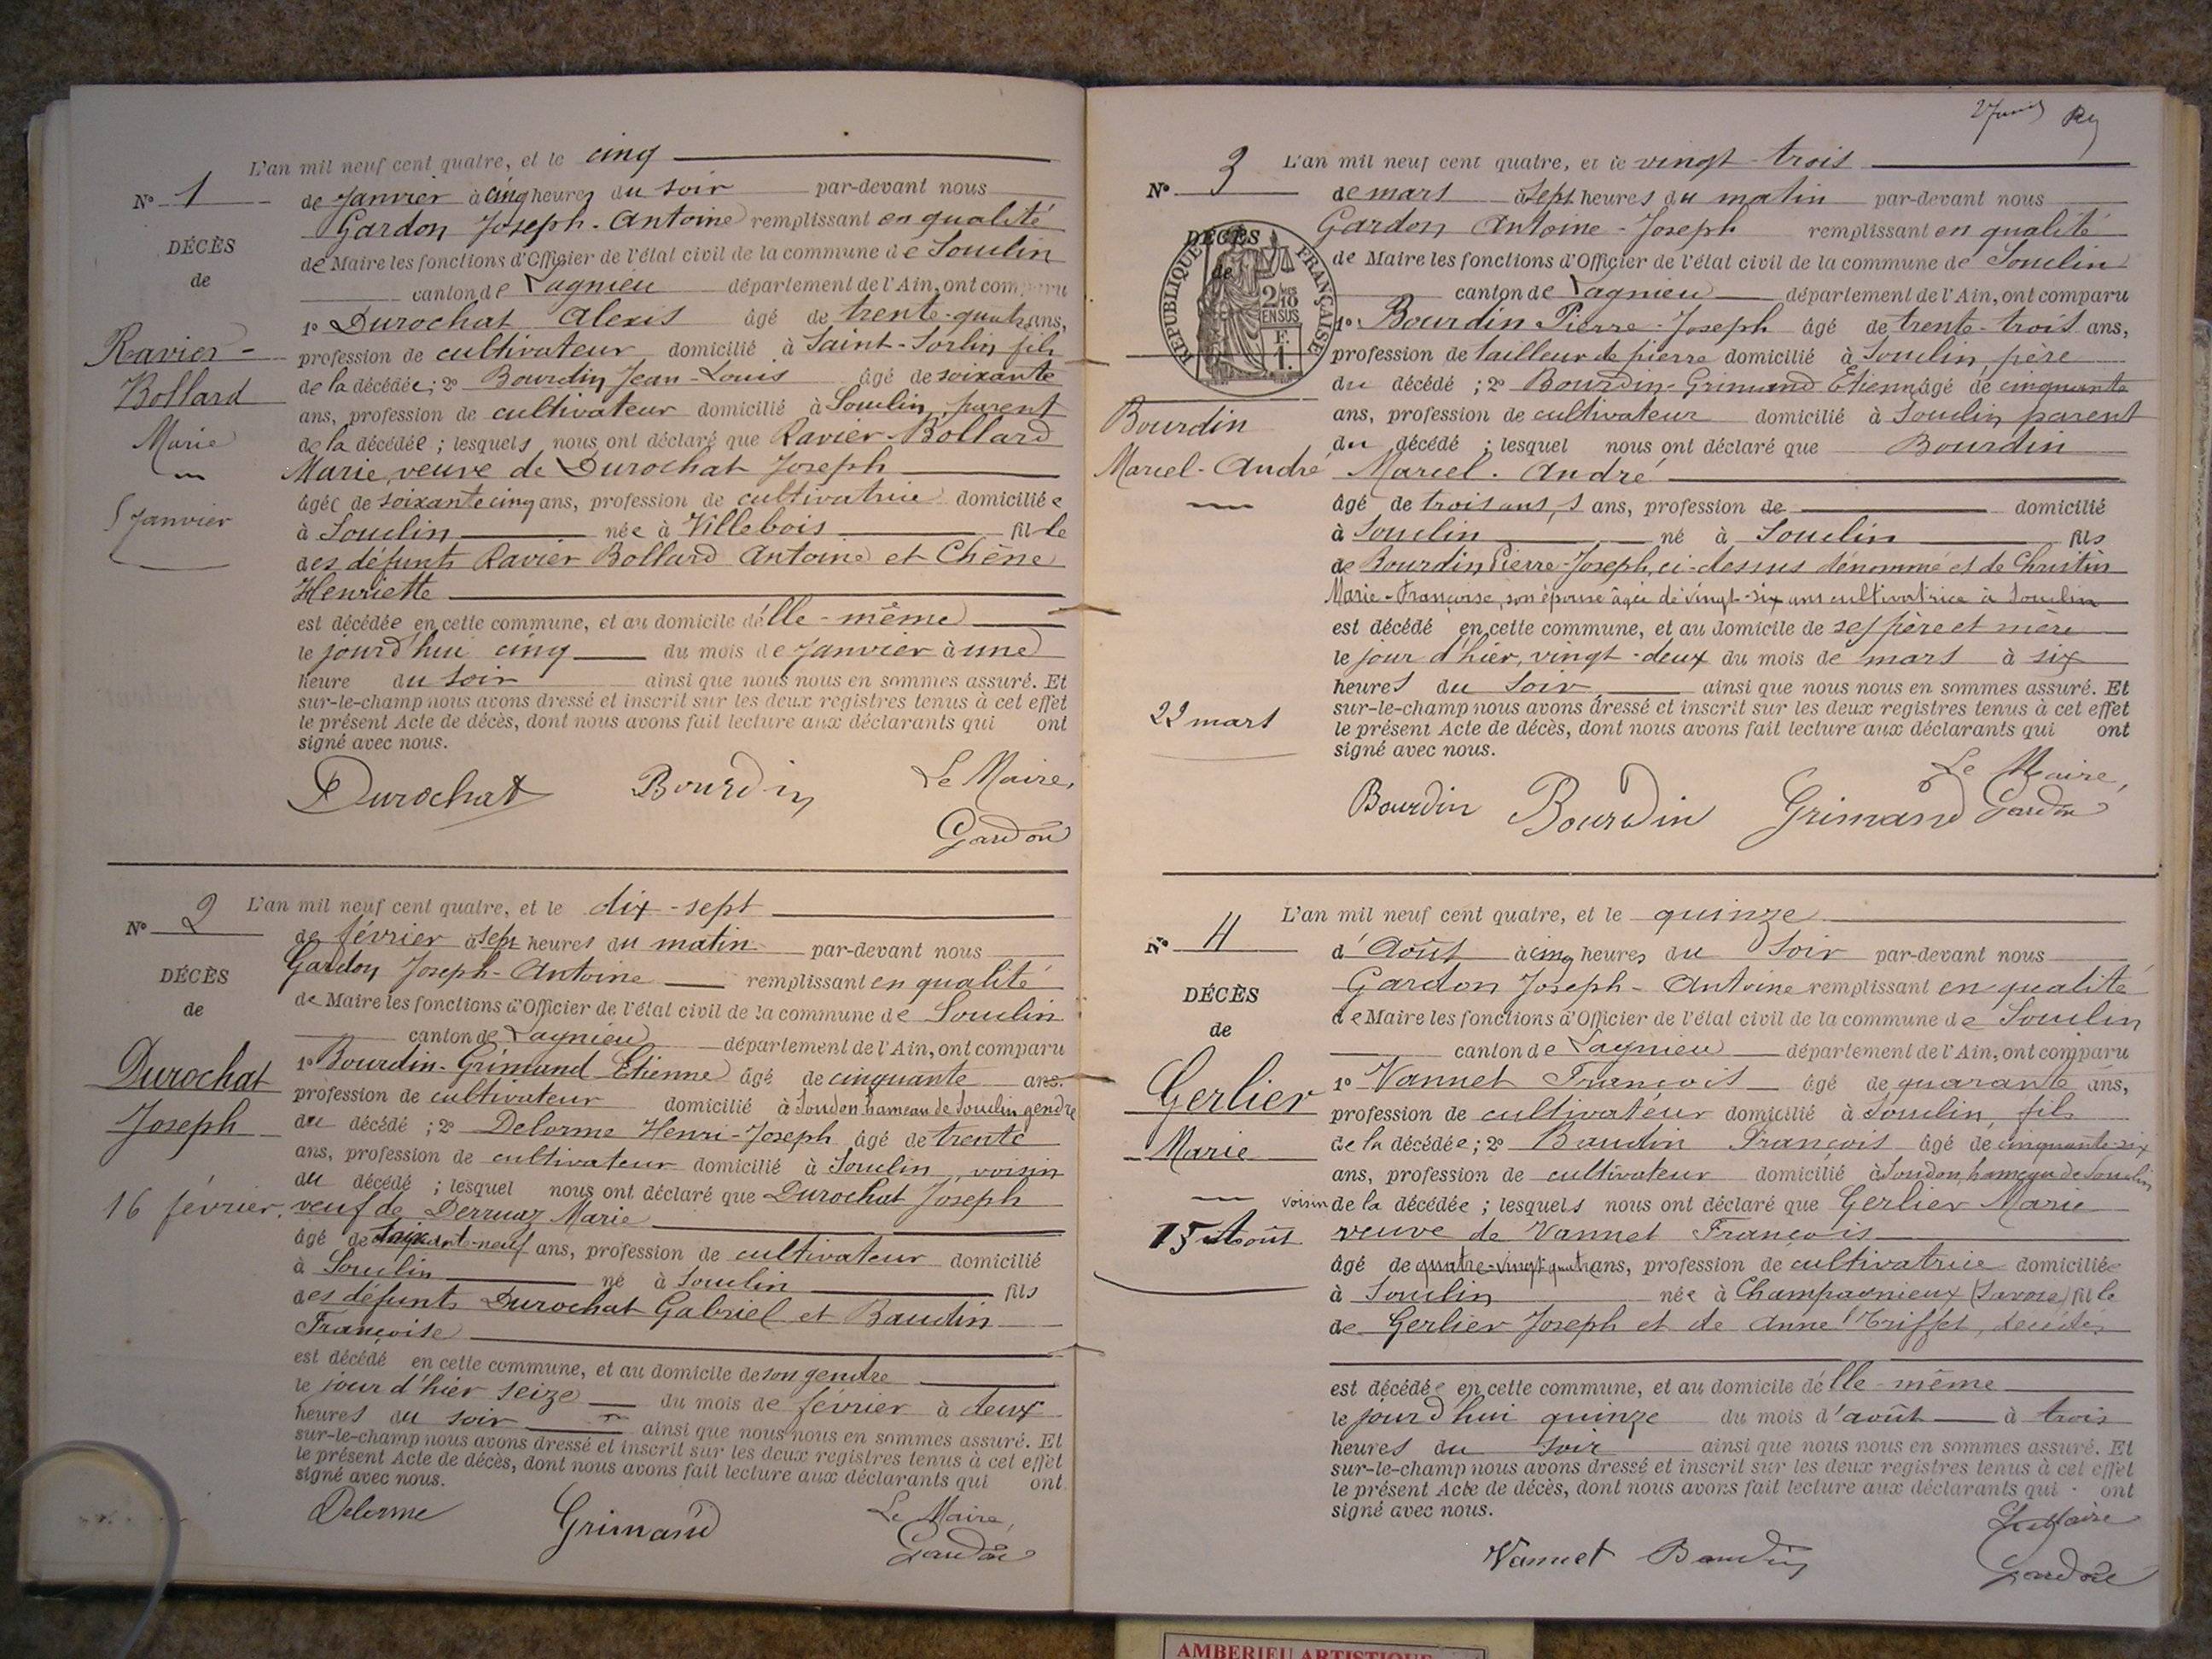 L'an mil neuf cent quatre, et le cinq
N° 1
de Janvier à cinq heures du soir par-devant nous
Gardon Joseph-Antoine remplissant en qualité
DÉCÈS
de Maire les fonctions d'Officier de l'état civil de la commune de Souclin
de
canton de Lagnieu département de l'Ain, ont comparu
1° Durochat Alexis âgé de trente-quatre ans,
Ravier-
profession de cultivateur domicilié à Saint-Sorlin fils
Bollard
de la décédée; 2° Bourdin Jean-Louis âgé de soixante
ans, profession de cultivateur domicilié à Souclin, parent
Marie
de la décédée; lesquels nous ont déclaré que Ravier-Bollard
Marie, veuve de Durochat Joseph
âgée de soixante cinq ans, profession de cultivatrice domiciliée
5 Janvier
à Souclin née à Villebois fille
des défunts Ravier Bollard Antoine et Chêne
Henriette
est décédée en cette commune, et au domicile d'elle-même
le jourd'hui cinq du mois de Janvier à une
heure du soir ainsi que nous nous en sommes assuré. Et
sur-le-champ nous avons dressé et inscrit sur les deux registres tenus à cet effet
le présent Acte de décès, dont nous avons fait lecture aux déclarants qui ont
signé avec nous.
Durochat Bourdin Le Maire,
Gardon
L'an mil neuf cent quatre, et le dix-sept
N° 2
de février à sept heures du matin par-devant nous
Gardon Joseph-Antoine remplissant en qualité
DÉCÈS
de Maire les fonctions d'Officier de l'état civil de la commune de Souclin
de
canton de Lagnieu département de l'Ain, ont comparu
1° Bourdin-Grimand Etienne âgé de cinquante ans.
Durochat
profession de cultivateur domicilié à Soudon hameau de Souclin gendre
Joseph
du décédé; 2° Delorme Henri-Joseph âgé de trente
ans, profession de cultivateur domicilié à Souclin, voisin
du décédé; lesquel nous ont déclaré que Durochat Joseph
16 février.
veuf de Derruaz Marie
âgé de neuf ans, profession de cultivateur domicilié
à Souclin né à Souclin fils
des défunts Durochat Gabriel et Baudin
Françoise
est décédé en cette commune, et au domicile de son gendre
le jour d'hier seize du mois de février à deux
heures du soir ainsi que nous nous en sommes assuré. Et
sur-le-champ nous avons dressé et inscrit sur les deux registres tenus à cet effet
le présent Acte de décès, dont nous avons fait lecture aux déclarants qui ont
signé avec nous.
Delorme Grimand Le Maire,
Gardon
L'an mil neuf cent quatre, et le vingt-trois
N° 3
de mars à sept heures du matin par-devant nous
Gardon Antoine-Joseph remplissant en qualité
DÉCÈS
de Maire les fonctions d'Officier de l'état civil de la commune de Souclin
de
RÉPUBLIQUE FRANÇAISE
2 10 EN SUS
F. 1.
canton de Lagnieu département de l'Ain, ont comparu
1° Bourdin Pierre-Joseph âgé de trente-trois ans,
profession de tailleur de pierre domicilié à Souclin, père
du décédé; 2° Bourdin-Grimand Etienne âgé de cinquante
Bourdin
ans, profession de cultivateur domicilié à Souclin parent
du décédé; lesquel nous ont déclaré que Bourdin
Marcel-André
Marcel-André
âgé de trois ans, s ans, profession de domicilié
à Souclin né à Souclin fils
de Bourdin Pierre-Joseph, ci-dessus dénommé et de Christin
Marie-Françoise, son épouse âgée de vingt-six ans cultivatrice à Souclin
est décédé en cette commune, et au domicile de ses père et mère
le jour d'hier, vingt-deux du mois de mars à six
heures du soir ainsi que nous nous en sommes assuré. Et
22 mars
sur-le-champ nous avons dressé et inscrit sur les deux registres tenus à cet effet
le présent Acte de décès, dont nous avons fait lecture aux déclarants qui ont
signé avec nous.
Le Maire,
Bourdin Bourdin Grimand Gardon
L'an mil neuf cent quatre, et le quinze
N° 4
d'Août à cinq heures du soir par-devant nous
Gardon Joseph-Antoine remplissant en qualité
DÉCÈS
de Maire les fonctions d'Officier de l'état civil de la commune de Souclin
de
canton de Lagnieu département de l'Ain, ont comparu
Gerlier
1° Vannet François âgé de quarante ans,
profession de cultivateur domicilié à Souclin, fils
Marie
de la décédée; 2° Baudin François âgé de cinquante-six
ans, profession de cultivateur domicilié à Soudon, hameau de Souclin
voisin de la décédée; lesquels nous ont déclaré que Gerlier Marie
15 Août
veuve de Vannet François
âgé de quatre-vingt quatre ans, profession de cultivatrice domiciliée
à Souclin née à Champagnieux (Savoie) fille
de Gerlier Joseph et de Anne Triffet, décédés
est décédée en cette commune, et au domicile d'elle-même
le jourd'hui quinze du mois d'août à trois
heures du soir ainsi que nous nous en sommes assuré. Et
sur-le-champ nous avons dressé et inscrit sur les deux registres tenus à cet effet
le présent Acte de décès, dont nous avons fait lecture aux déclarants qui ont
signé avec nous.
Le Maire
Vannet Baudin
Gardon
AMBERIEU ARTISTIQUE